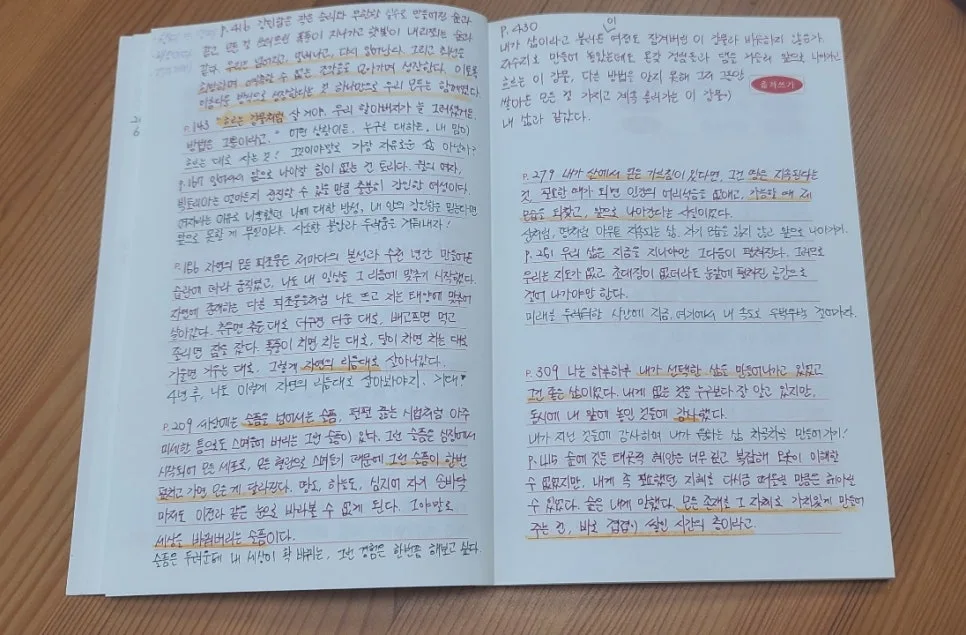 p. 416 강인함은 작은 승리와 무한한 실수로 만들어진 숲과
같고, 모든 걸 쓰러뜨린 폭풍이 지나가고 햇빛이 내리쬐는 숲과
같다. 우리는 넘어지고, 밀려나고, 다시 일어난다. 그리고 최선을
희망하며 예측할 수 없는 조각들을 모아가며 성장한다. 이토록
아름다운 방식으로 성장한다는 것 하나만으로 우리 모두는 함께였다.
p. 143 "흐르는 강물처럼 살 거야. 우리 할아버지가 늘 그러셨거든.
방법은 그뿐이라고." 어떤 상황이든, 누구를 대하든, 내 맘이
흐르는 대로 사는 것! 그것이야말로 가장 자유로운 삶 아닌가?
p. 167 앞으로 나아갈 힘이 없는 건 토리다. 월의 여자,
빅토리아는 얼마든지 전진할 수 있을 만큼 충분히 강인한 여성이다.
여자라는 이유로 나약했던 나에 대한 반성, 내 안의 강인함을 믿는다면
앞으로 못할 게 무엇이랴. 사소한 불안과 두려움은 거둬내자!
p. 186 자연의 모든 피조물은 저마다의 본성과 수천 년간 만들어온
습관에 따라 움직였고, 나도 내 일상을 그 리듬에 맞추기 시작했다.
자연에 존재하는 다른 피조물들처럼 나도 뜨고 지는 태양에 맞추어
살아갔다. 추우면 추운 대로 더우면 더운 대로, 배고프면 먹고
졸리면 잠을 잤다. 폭풍이 치면 치는 대로, 달이 차면 차는 대로
기울면 기우는 대로, 그렇게 자연의 리듬대로 살아나갔다.
4년 후, 나도 이렇게 자연의 리듬대로 살아봐야지. 기대!
p. 209 세상에는 슬픔을 넘어서는 슬픔, 펄펄 끓는 시럽처럼 아주
미세한 틈으로도 스며들어 버리는 그런 슬픔이 있다. 그런 슬픔은 심장에서
시작되어 모든 세포로, 모든 혈관으로 스며들기 때문에 그런 슬픔이 한번
덮치고 가면 모든 게 달라진다. 땅도, 하늘도, 심지어 자기 손바닥
마저도 이전과 같은 눈으로 바라볼 수 없게 된다. 그야말로
세상을 바꿔버리는 슬픔이다.
슬픔은 두려운데 내 세상이 확 바뀌는, 그런 경험은 한번쯤 해보고 싶다.
p. 430
내가 삶이라고 불러온 이 여정도 잠겨버린 이 강물과 비슷하지 않은가
저수지로 만들어 놓았는데도 온갖 걸림돌과 댐을 거슬러 앞으로 나아가고
흐르는 이 강물, 다른 방법은 알지 못해 그저 그동안
쌓아온 모든 걸 가지고 계속 흘러가는 이 강물이
내 삶과 같았다.
옮겨쓰기
p. 279 내가 삶에서 깨달은 가르침이 있다면, 그건 땅은 지속된다는
것, 필요한 때가 되면 인간의 어리석음을 없애고, 가능할 때 제
모습을 되찾고, 앞으로 나아간다는 사실이었다.
산처럼, 땅처럼 아무튼 지속되는 삶, 자기 모습을 잃지 않고 앞으로 나아가기.
p. 261 우리 삶은 지금을 지나야만 그다음이 펼쳐진다. 그러므로
우리는 지도가 없고 초대장이 없더라도 눈앞에 펼쳐진 공간으로
걸어 나가야만 한다.
미래를 두려워할 시간에 지금, 여기에서 내 속도로 뚜벅뚜벅 걸어가자.
p. 309 나는 하루하루 내가 선택한 삶을 만들어나가고 있었고
그건 좋은 삶이었다. 내게 없는 것을 누구보다 잘 알고 있지만,
동시에 내 앞에 놓인 것들에 감사했다.
내가 지닌 것들에 감사하며 내가 원하는 삶 차곡차곡 만들어 가기!
p. 415 숲에 깃든 태곳적 혜안은 너무 깊고 복잡해 도무지 이해할
수 없었지만, 내게 꼭 필요했던 지혜로 다시금 떠올릴 만큼은 헤아릴
수 있었다. 숲은 내게 말했다. 모든 존재를 그 자체로 가치있게 만들어
주는 건, 바로 겹겹이 쌓인 시간의 층이라고.